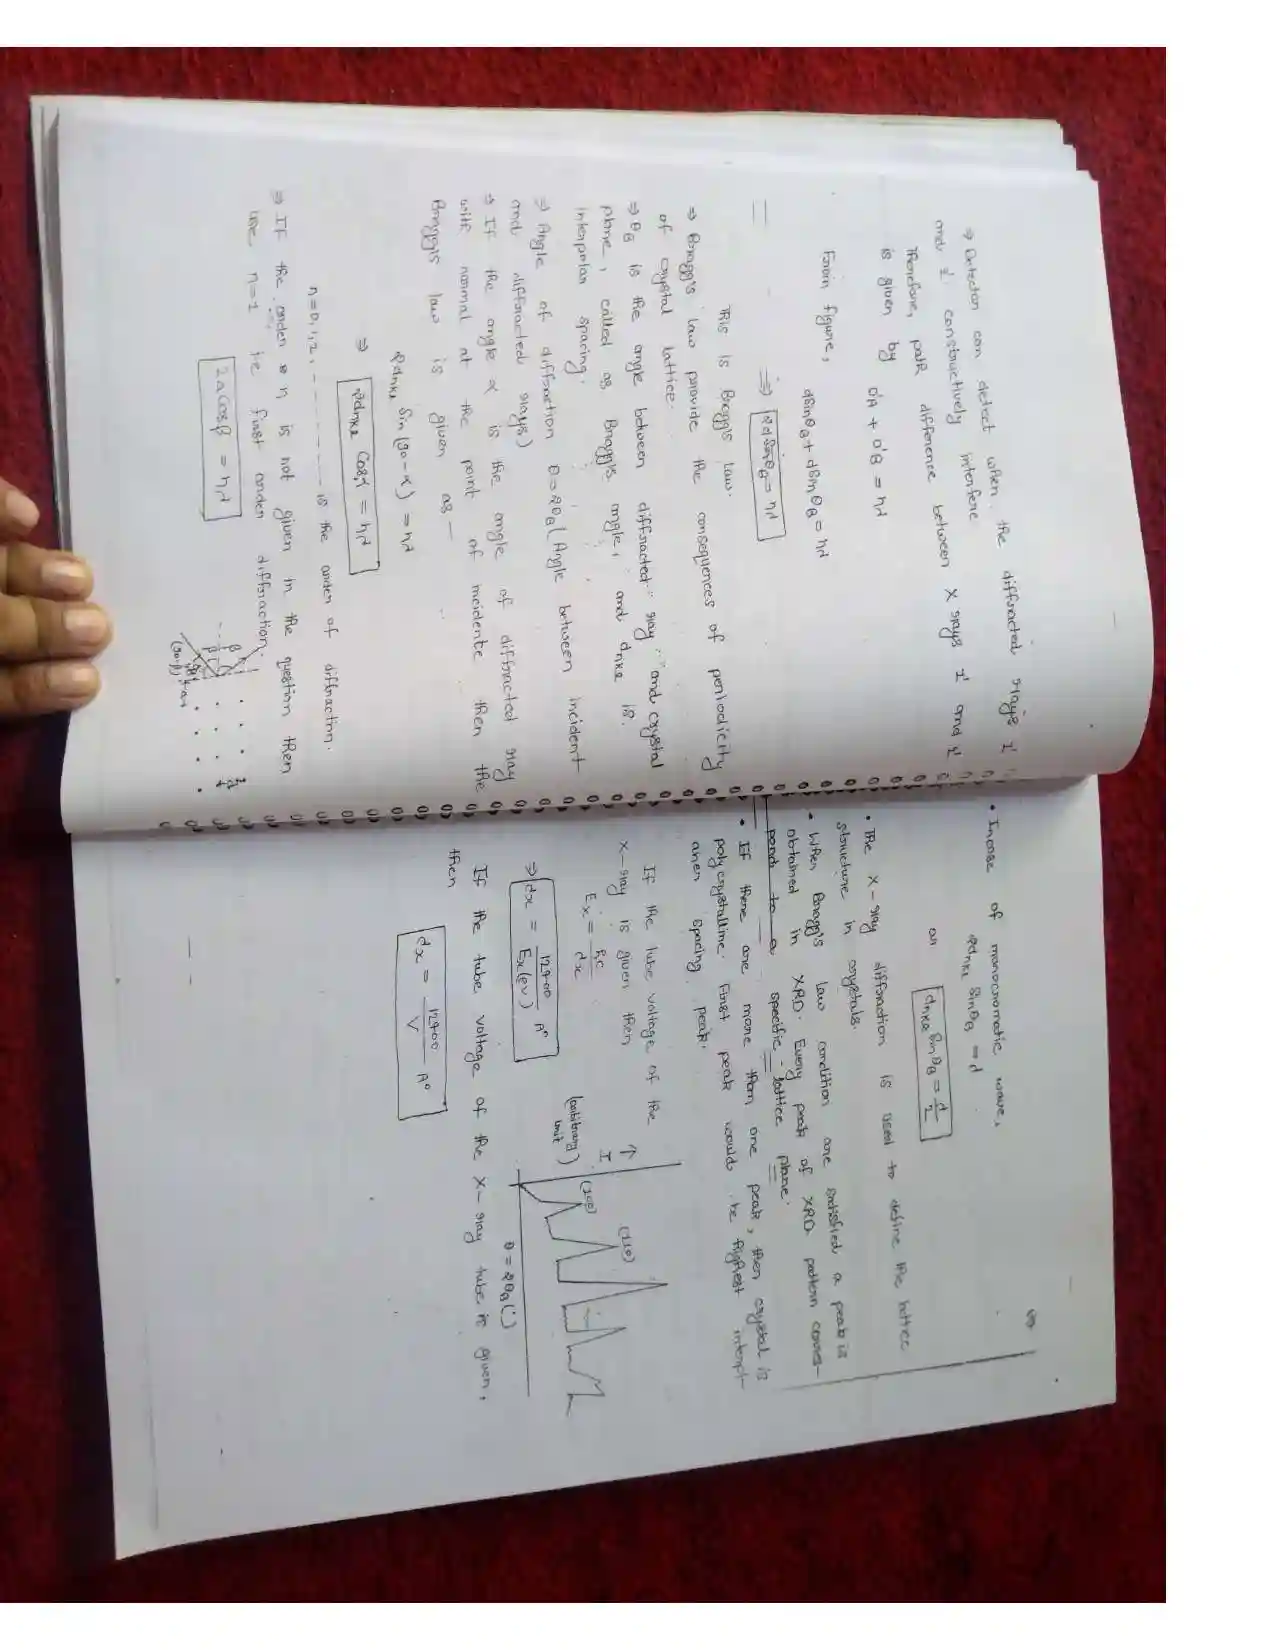 ⇒ Detector can detect when the diffracted rays 1'
and 2' constructively interfere
Therefore, path difference between X rays 1' and 2'
is given by
O'A + O'B = nλ
From figure,
dsinθB + dsinθB = nλ
⇒ 2d SinθB = nλ
This is Bragg's law.
⇒ Bragg's law provide the consequences of periodicity
of crystal lattice.
⇒ θB is the angle between diffracted ray and crystal
plane, called as Bragg's angle, and dhkl is
interplar spacing.
⇒ Angle of diffraction θ = 2θB (Angle between incident
and diffracted rays)
⇒ If the angle α is the angle of diffracted ray
with normal at the point of incidente then the
Bragg's law is given as —
2dhkl Sin(90-α) = nλ
⇒ 2dhkl Cosα = nλ
n = 0, 1, 2, - - - - - - - is the order of diffraction.
⇒ If the order n is not given in the question then
use n=1 ie first order diffraction.
2a Cosβ = nλ
β
β
(90-β)
• Incase of monocromatic wave,
2dhkl SinθB = λ
or dhkl SinθB = λ/2
• The X-ray diffraction is used to define the lattice
structure in crystals.
• When Bragg's law condition are satisfied a peak is
obtained in XRD. Every peak of XRD pattern corres-
pond to a specific lattice plane.
• If there are more than one peak, then crystal is
polycrystalline. First peak would be highest interpl-
aner spacing peak.
If the tube voltage of the
X-ray is given then
Ex = hc/λx
⇒ λx = 12400/Ex(eV) A°
↑
I
(arbitrary
unit)
(100)
(110)
θ = 2θB (°)
If the tube voltage of the X-ray tube is given,
then
λx = 12400/V A°